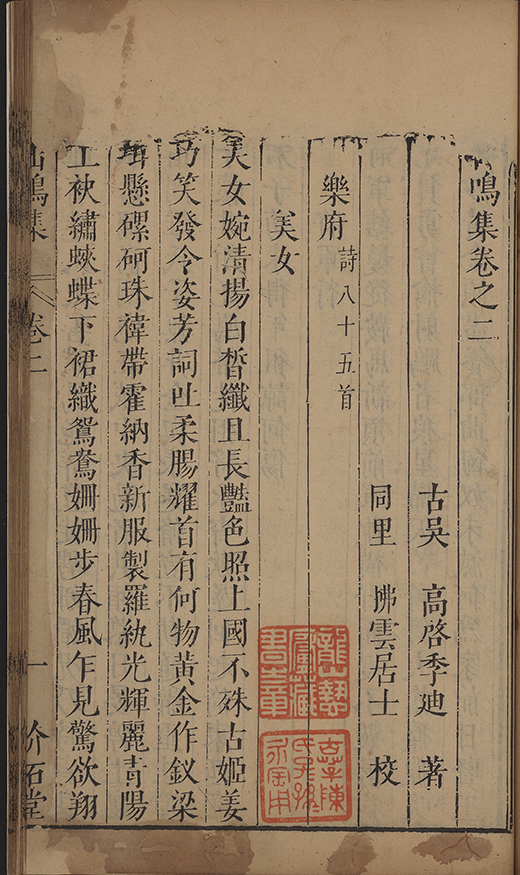 鳴集卷之二
古吳 高啓季迪 著
同里 拂雲居士 校
樂府 詩八十五首
美女
美女婉清揚白晳纖且長豔色照上國不殊古姬姜
巧笑發令姿芳詞吐柔腸耀首有何物黃金作釵梁
珥懸磥砢珠褘帶霍納香新服製羅紈光輝麗青陽
上袂繡蛺蝶下裙織鴛鴦姍姍步春風乍見驚欲翔
鳴集
卷二
一
介石堂